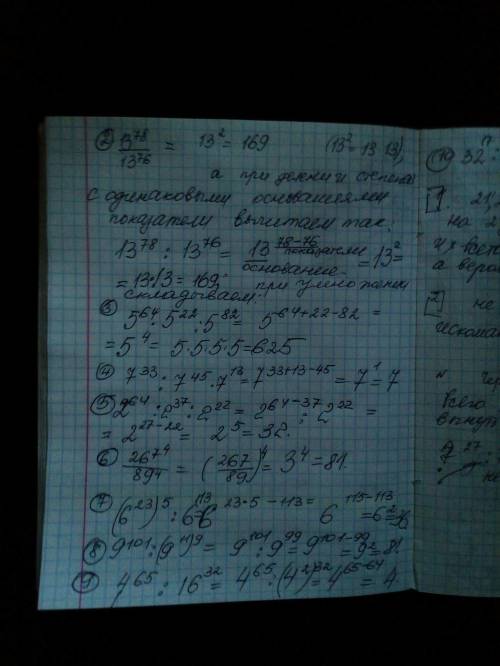 ② 13^78 / 13^76 = 13^2 = 169 (13^2 = 13·13),
а при делении степеней
с одинаковыми основаниями
показатели вычитаем так:
13^78 : 13^76 = 13^78-76 показатели = 13^2 =
основание
= 13·13 = 169 при умножении
складываем.
③ 5^64 · 5^22 : 5^82 = 5^64+22-82 =
= 5^4 = 5·5·5·5 = 625
④ 7^33 : 7^45 · 7^13 = 7^33+13-45 = 7^1 = 7
⑤ 2^64 : 2^37 : 2^22 = 2^64-37 : 2^22 =
= 2^27-22 = 2^5 = 32.
⑥ 267^4 / 89^4 = (267/89)^4 = 3^4 = 81.
⑦ (6^23)^5 : 6^113 = 6^23·5-113 = 6^115-113 = 6^2 = 36
⑧ 9^101 : (9^11)^9 = 9^101 : 9^99 = 9^101-99 = 9^2 = 81.
⑨ 4^65 : 16^32 = 4^65 : (4^2)^32 = 4^65-64 = 4.
⑲ 32^п
1. 21,
на 2
из всех
а веро
2 не
искома
всего
вынут
9^27 :